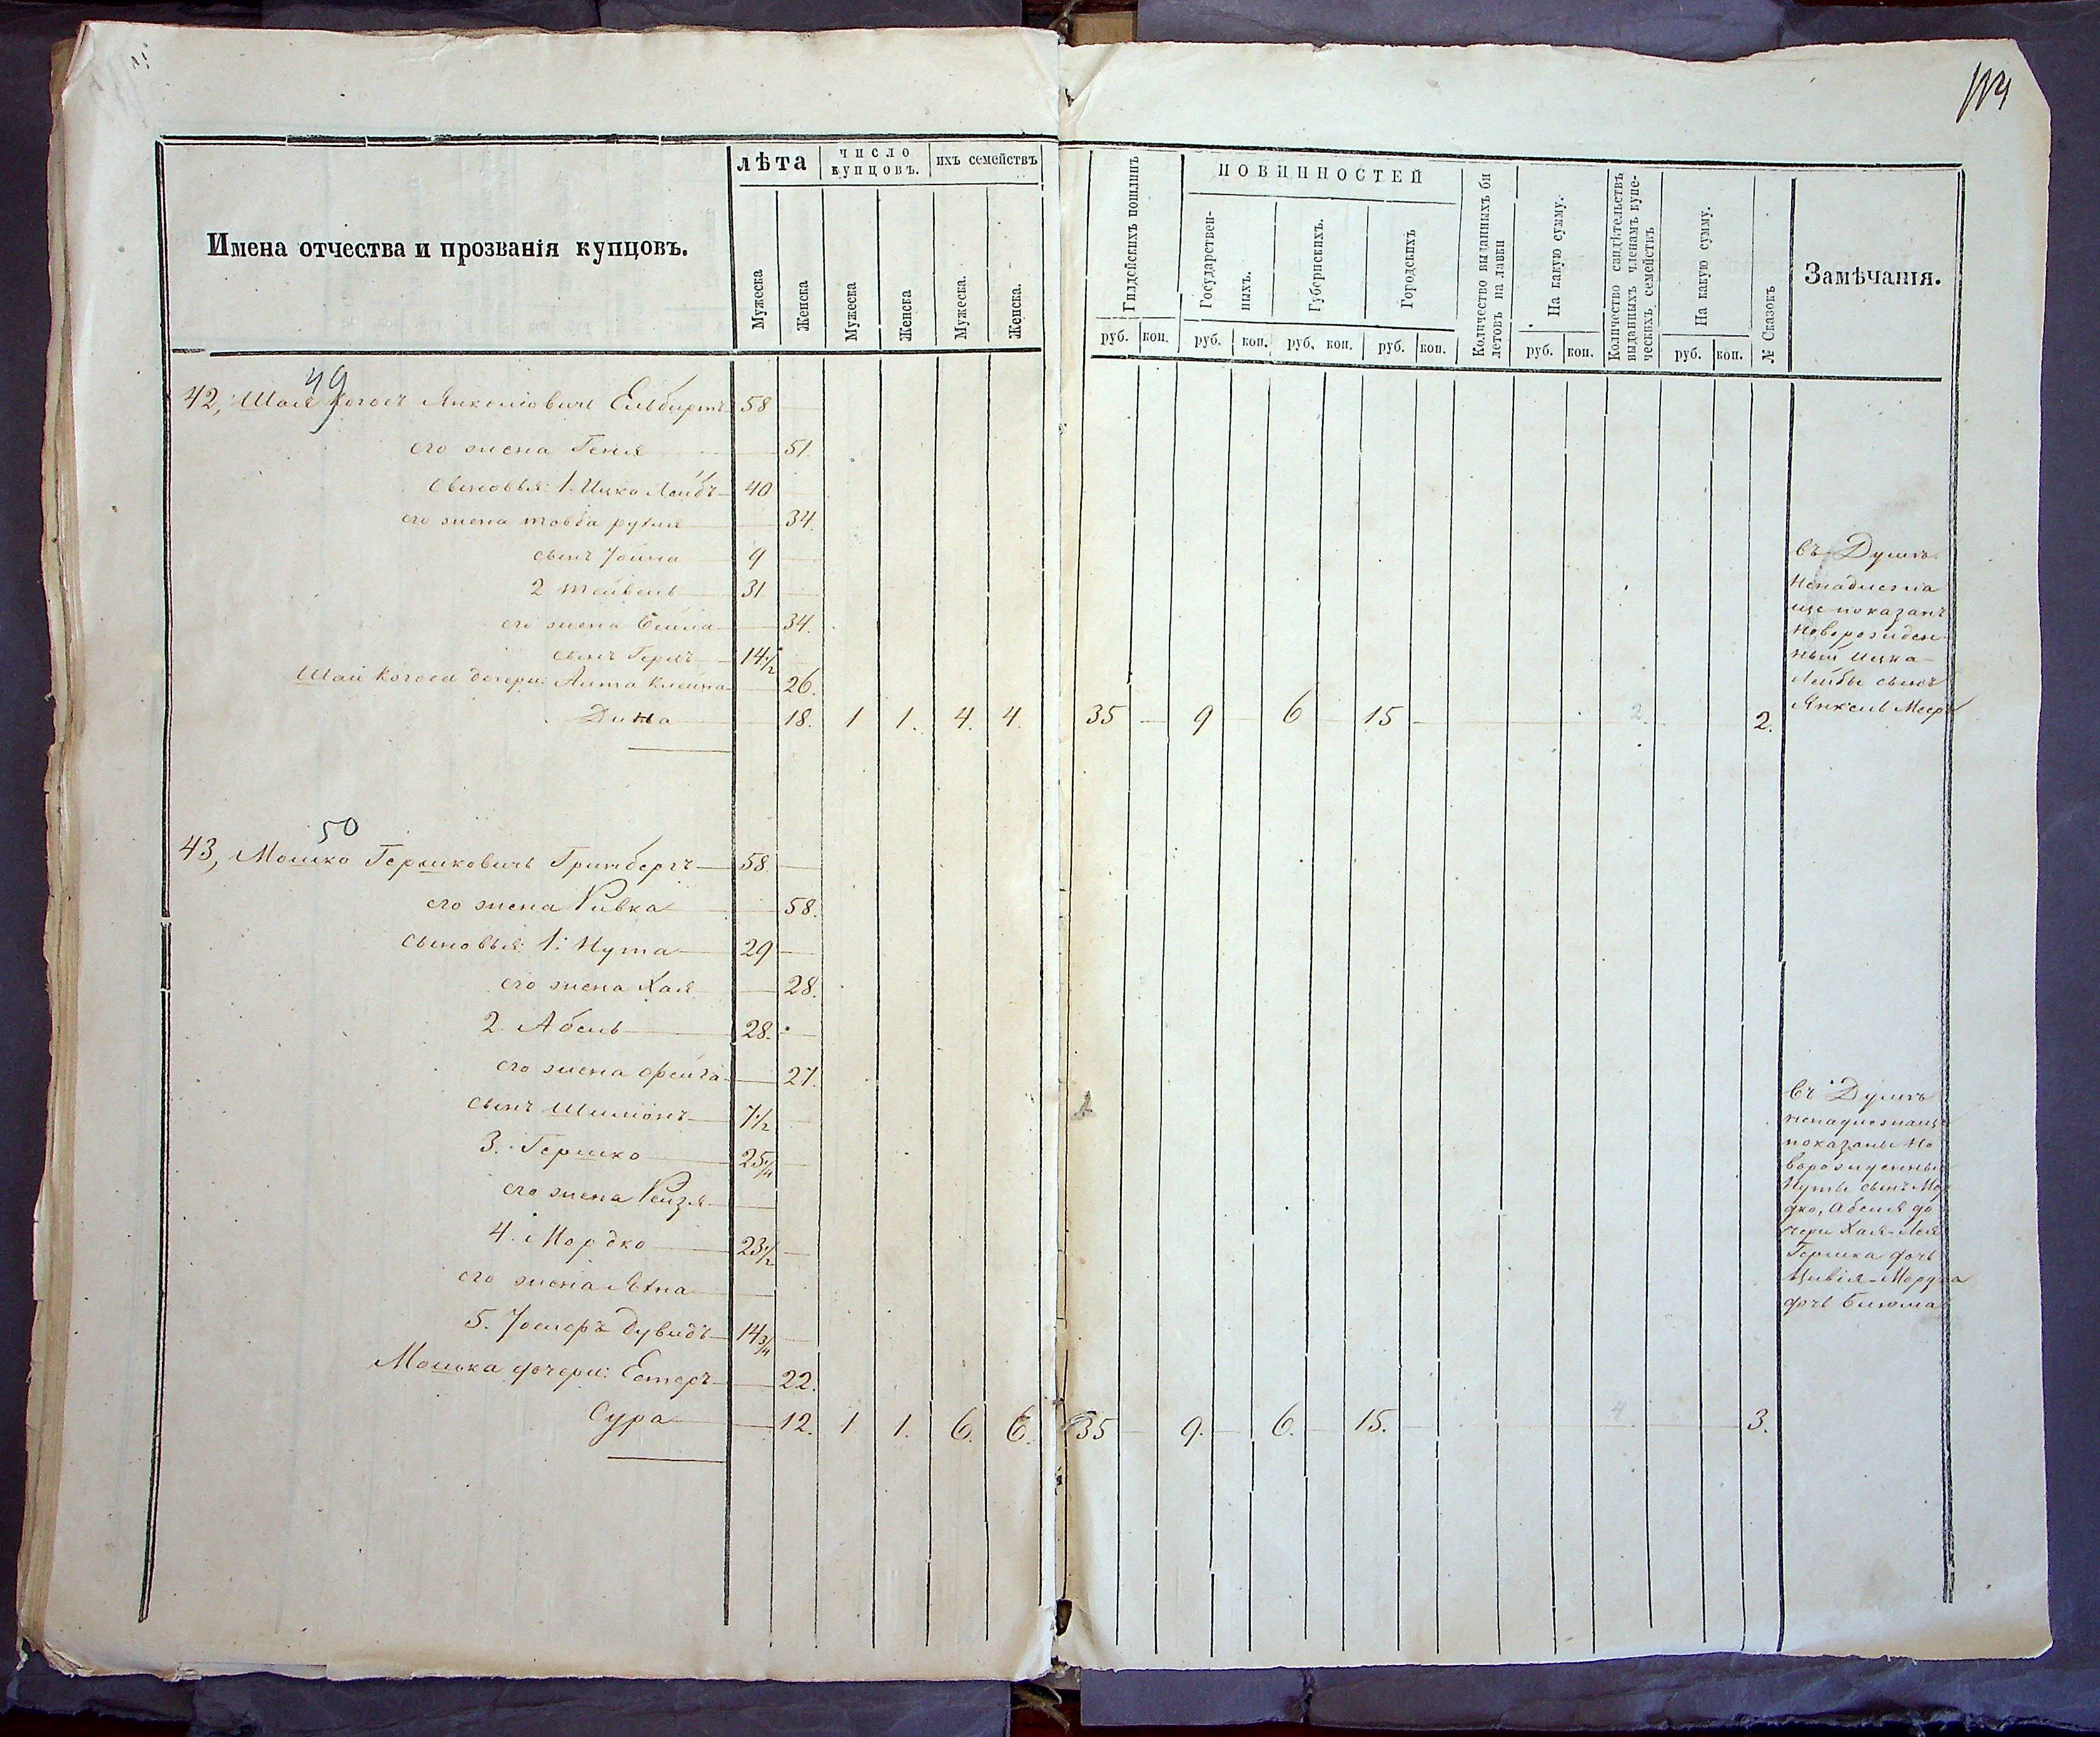 114
лѣта
число купцовъ.
ихъ семействъ
Имена отчества и прозванія купцовъ.
Мужеска
Женска
Мужеска
Женска
Мужеска.
Женска.
Гилдейскихъ пошлинъ
ПОВИННОСТЕЙ
Государственныхъ.
Губернскихъ.
Городскихъ
Количество выданныхъ билетовъ на лавки
На какую сумму.
Количество свидѣтельствъ выданныхъ членамъ купеческихъ семействъ
На какую сумму.
№ Сказокъ
Замѣчанія.
руб. коп. руб. коп. руб. коп. руб. коп. руб. коп. руб. коп.
49
42, Шая Янкелювичъ 58
его жена Геня 51
сыновья: 1. Ицко Лейбъ 40
его жена товба рухля 34
сынъ Іойна 9
2 тейвель 31
его жена Бейла 34.
сынъ Гершъ 14 1/2
дочери: 26.
Дина 18. 1 1. 4. 4. 35 9 6 15 2. 2.
въ Душъ
ненадлежа
ще показанъ
новорожден
ный Ицка
Лейбы сынъ
Янкель Меер
50
43, Мошко Гершковичъ Гринбергъ 58.
его жена Ривка 58.
сыновья: 1. Нута 29
его жена Хая 28.
2. Абель 28.
его жена фейга 27.
сынъ Шлиомъ 7 1/2
3. Гершко 25 1/4
его жена Рейзя
4. Мордко 23 1/2
его жена Яхна
5. Іосифъ Дувидъ 14 3/4
Мошка дочери: Естеръ 22.
Сура 12. 1 1. 6. 6. 35 9. 6. 15. 4 3.
въ Душъ
ненадлежаще
показаны но
ворожденны
Нуты сынъ Мор
дко, Абеля до
чери Хая-Лея
Гершка дочь
Цивія-Мордка
дочь Блюма